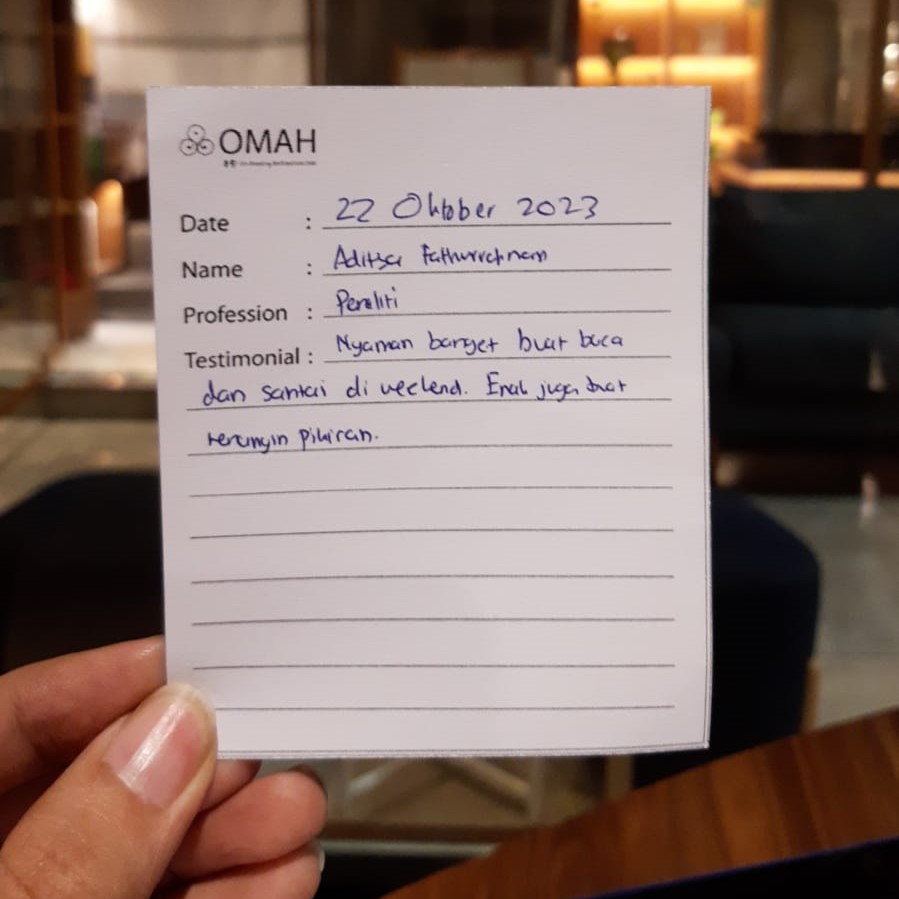 OMAH
Date : 22 Oktober 2023
Name : Aditya Fathurrahman
Profession : Peneliti
Testimonial : Nyaman banget buat baca
dan santai di weekend. Enak juga buat
tenangin pikiran.